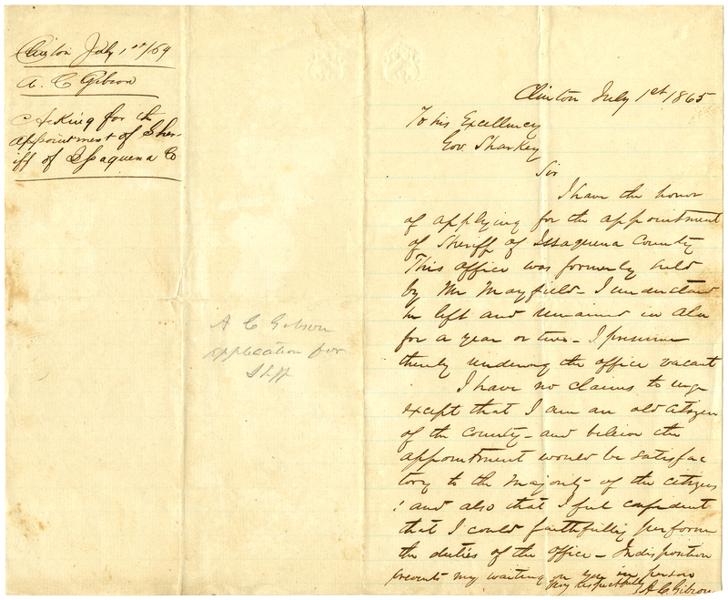 Clinton July 1st/69
A. C. Gibson
Asking for the
appointment of Sher-
iff of Issaquena Co
A C Gibson
application for
Shff
Clinton July 1st 1865
To his Excellency
Gov. Sharkey
Sir
I have the honor
of applying for the appointment
of Sheriff of Issaquena County
This office was formerly held
by Mr Mayfield - I understand
he left and remained in Ala
for a year or two - I presume
thereby rendering the office vacant
I have no claims to urge
except that I am an old citizen
of the county - and believe the
appointment would be satisfac
tory to the majority of the citizens
; and also that I feel confident
that I could faithfully perform
the duties of the office - Indisposition
prevents my waiting on you in person
very respectfully
A C Gibson